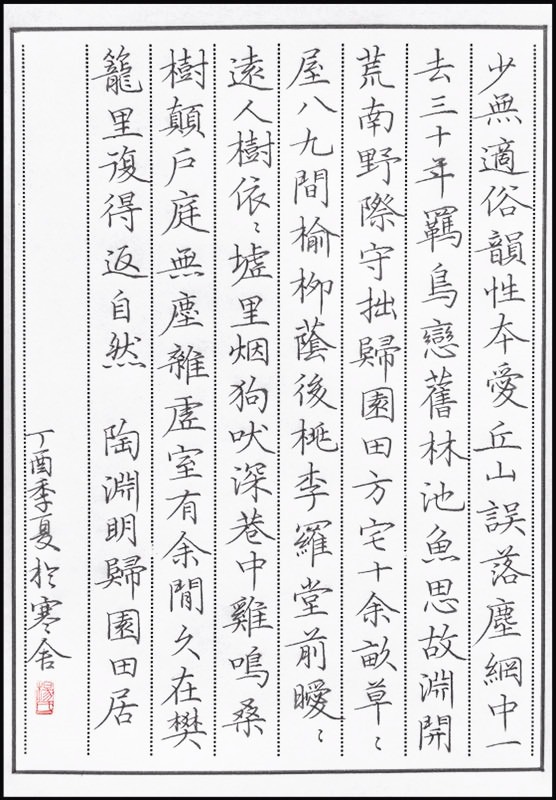 少無適俗韻性夲愛丘山誤落塵網中一
去三十年羈鳥戀舊林池魚思故淵開
荒南野際守拙歸園田方宅十余畝草〻
屋八九間榆柳蔭後桃李羅堂前曖〻
遠人樹依〻墟里烟狗吠深巷中雞鳴桑
樹顛戶庭無塵雜虛室有余閒久在樊
籠里復得返自然 陶淵明歸園田居
丁酉季夏於寒舍